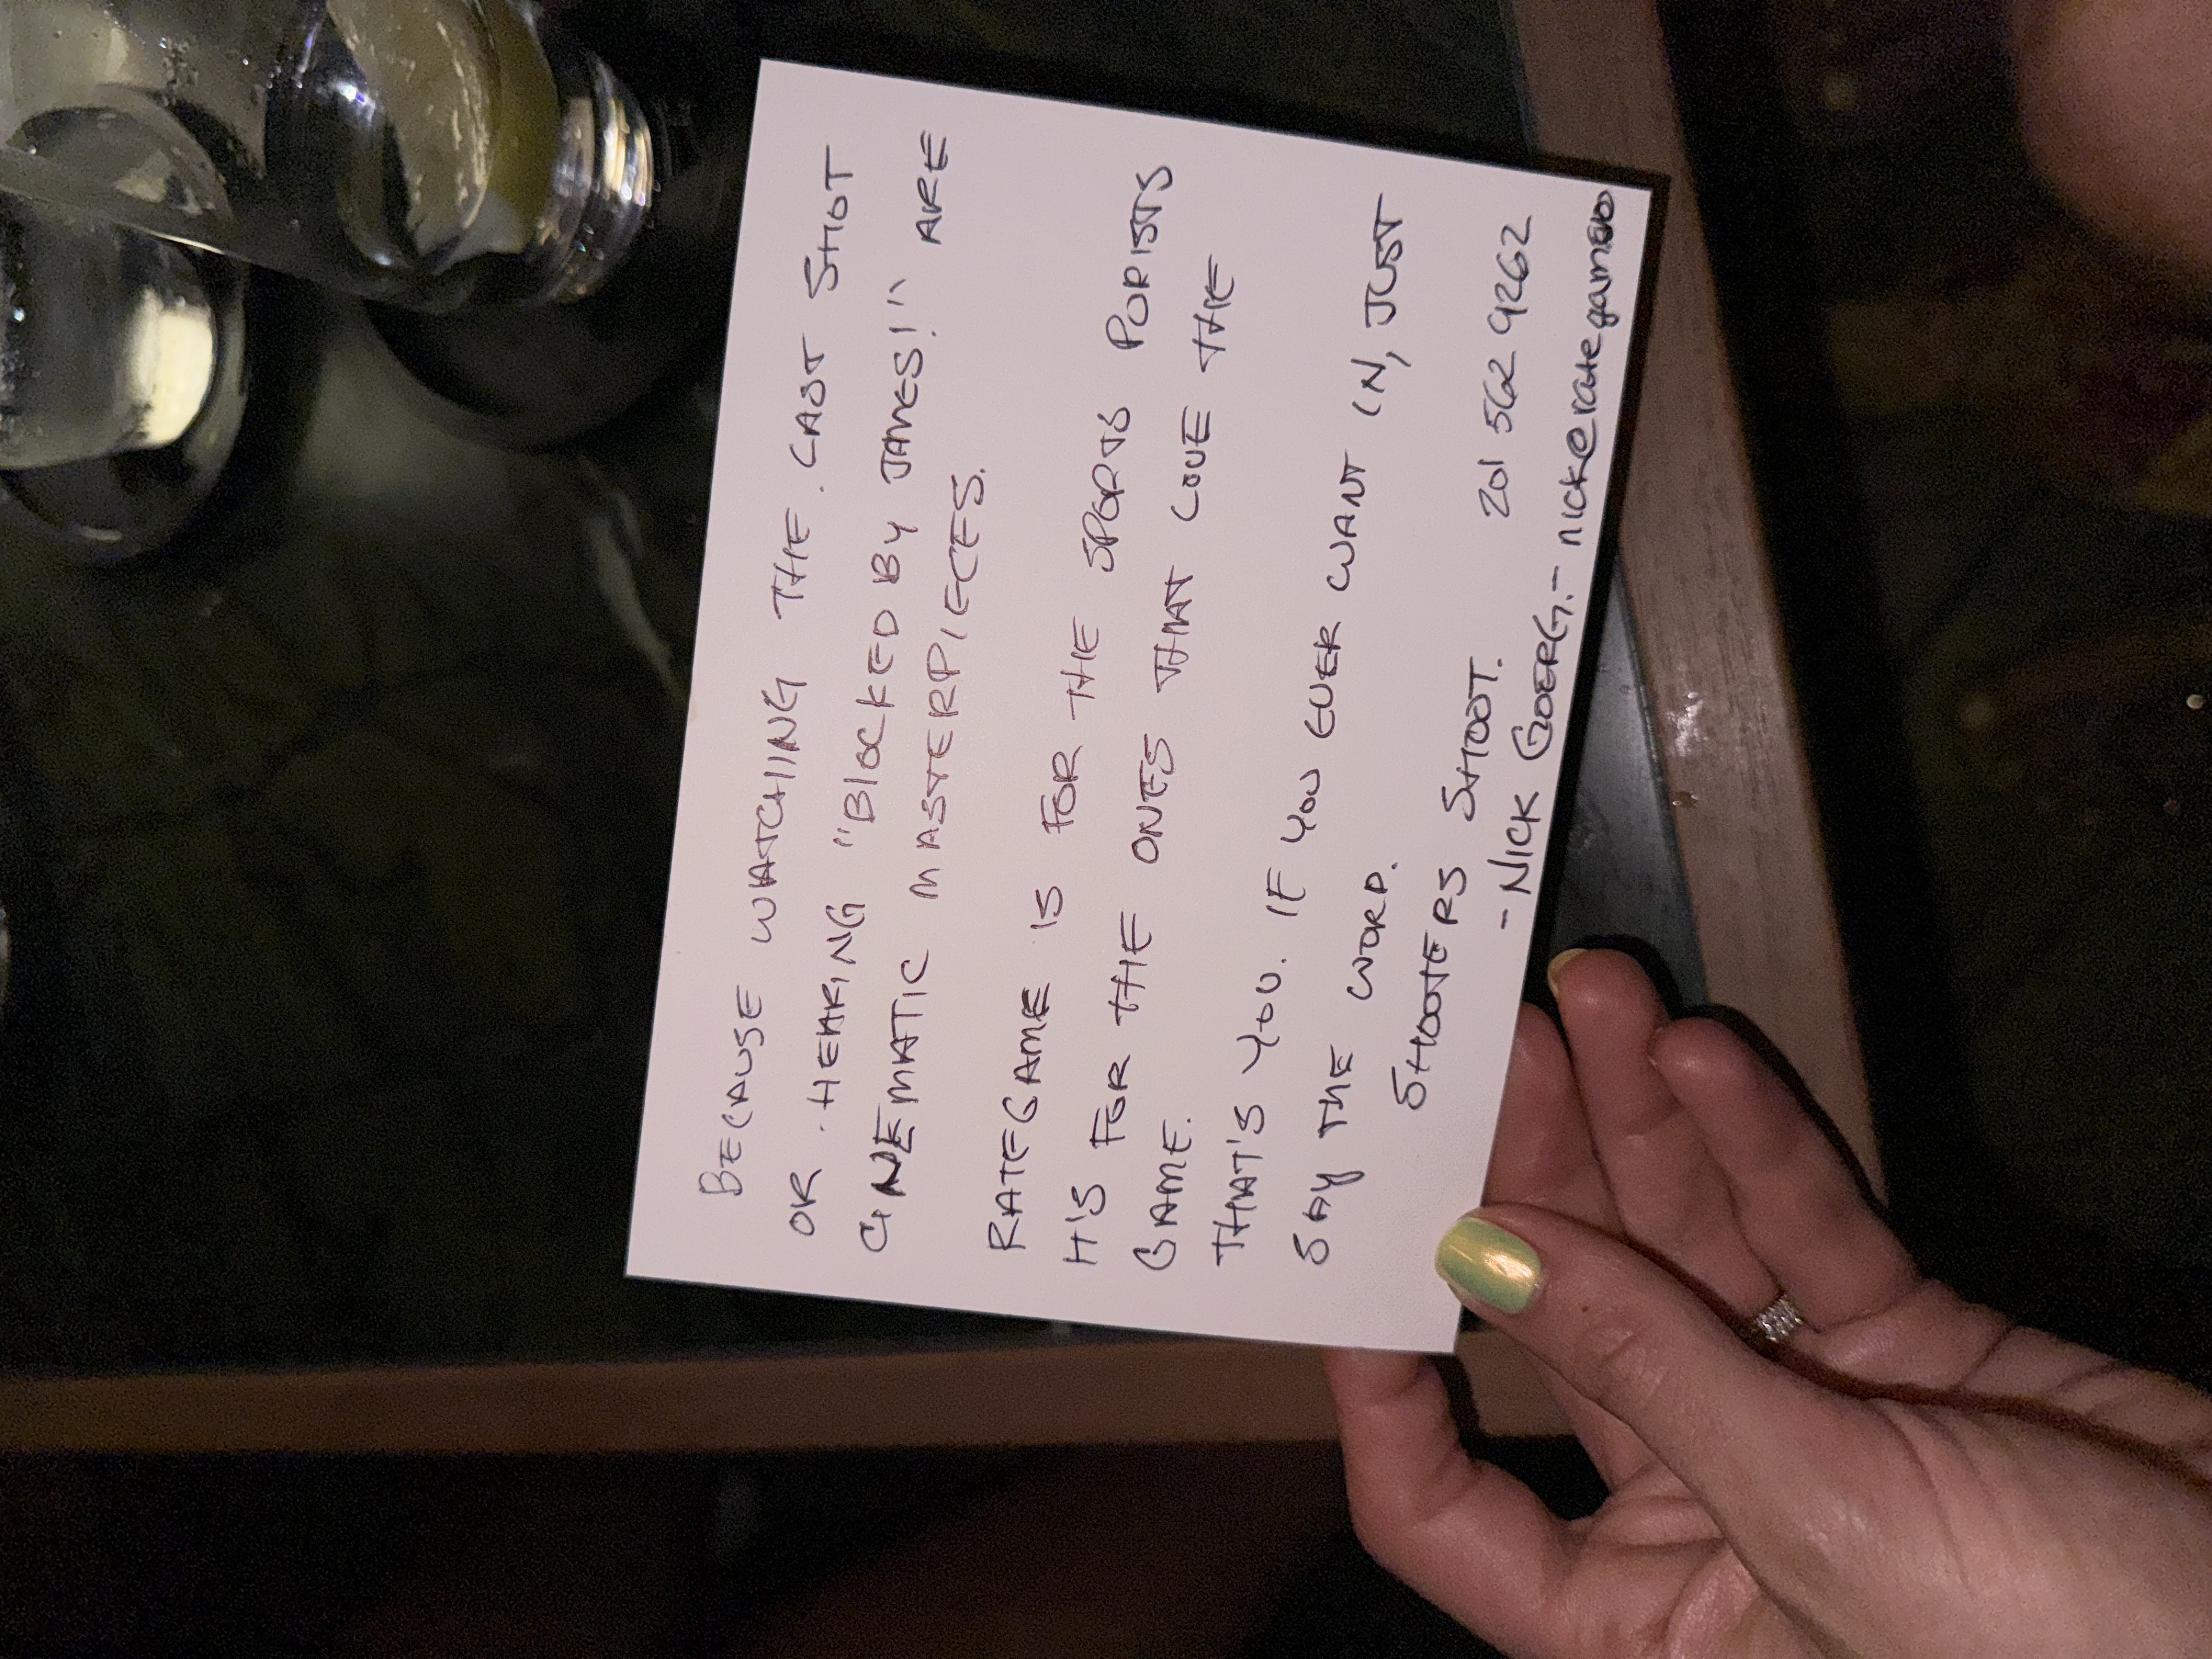 BECAUSE WATCHING THE LAST SHOT
OR HEARING "BLOCKED BY JAMES!" ARE
CINEMATIC MASTERPIECES.
RATEGAME IS FOR THE SPORTS PURISTS
IT'S FOR THE ONES THAT LOVE THE
GAME.
THAT'S YOU. IF YOU EVER WANT IN, JUST
SAY THE WORD.
SHOOTERS SHOOT.
201 562 9262
- NICK GOERG. -